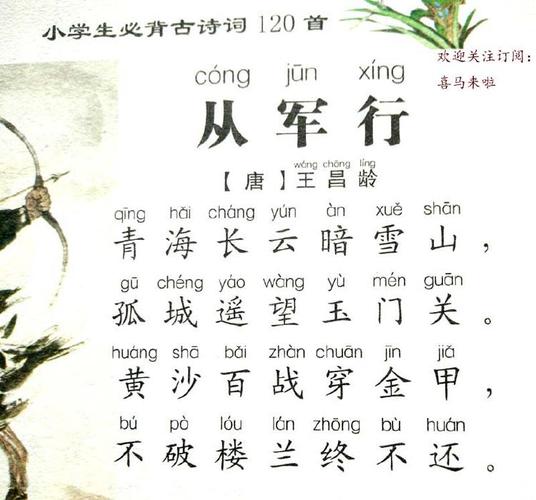 小学生必背古诗词 120 首
欢迎关注订阅：
喜马来啦
cóng jūn xíng
从军行
wáng chāng líng
【唐】王昌龄
qīng hǎi cháng yún àn xuě shān
青海长云暗雪山，
gū chéng yáo wàng yù mén guān
孤城遥望玉门关。
huáng shā bǎi zhàn chuān jīn jiǎ
黄沙百战穿金甲，
bú pò lóu lán zhōng bù huán
不破楼兰终不还。